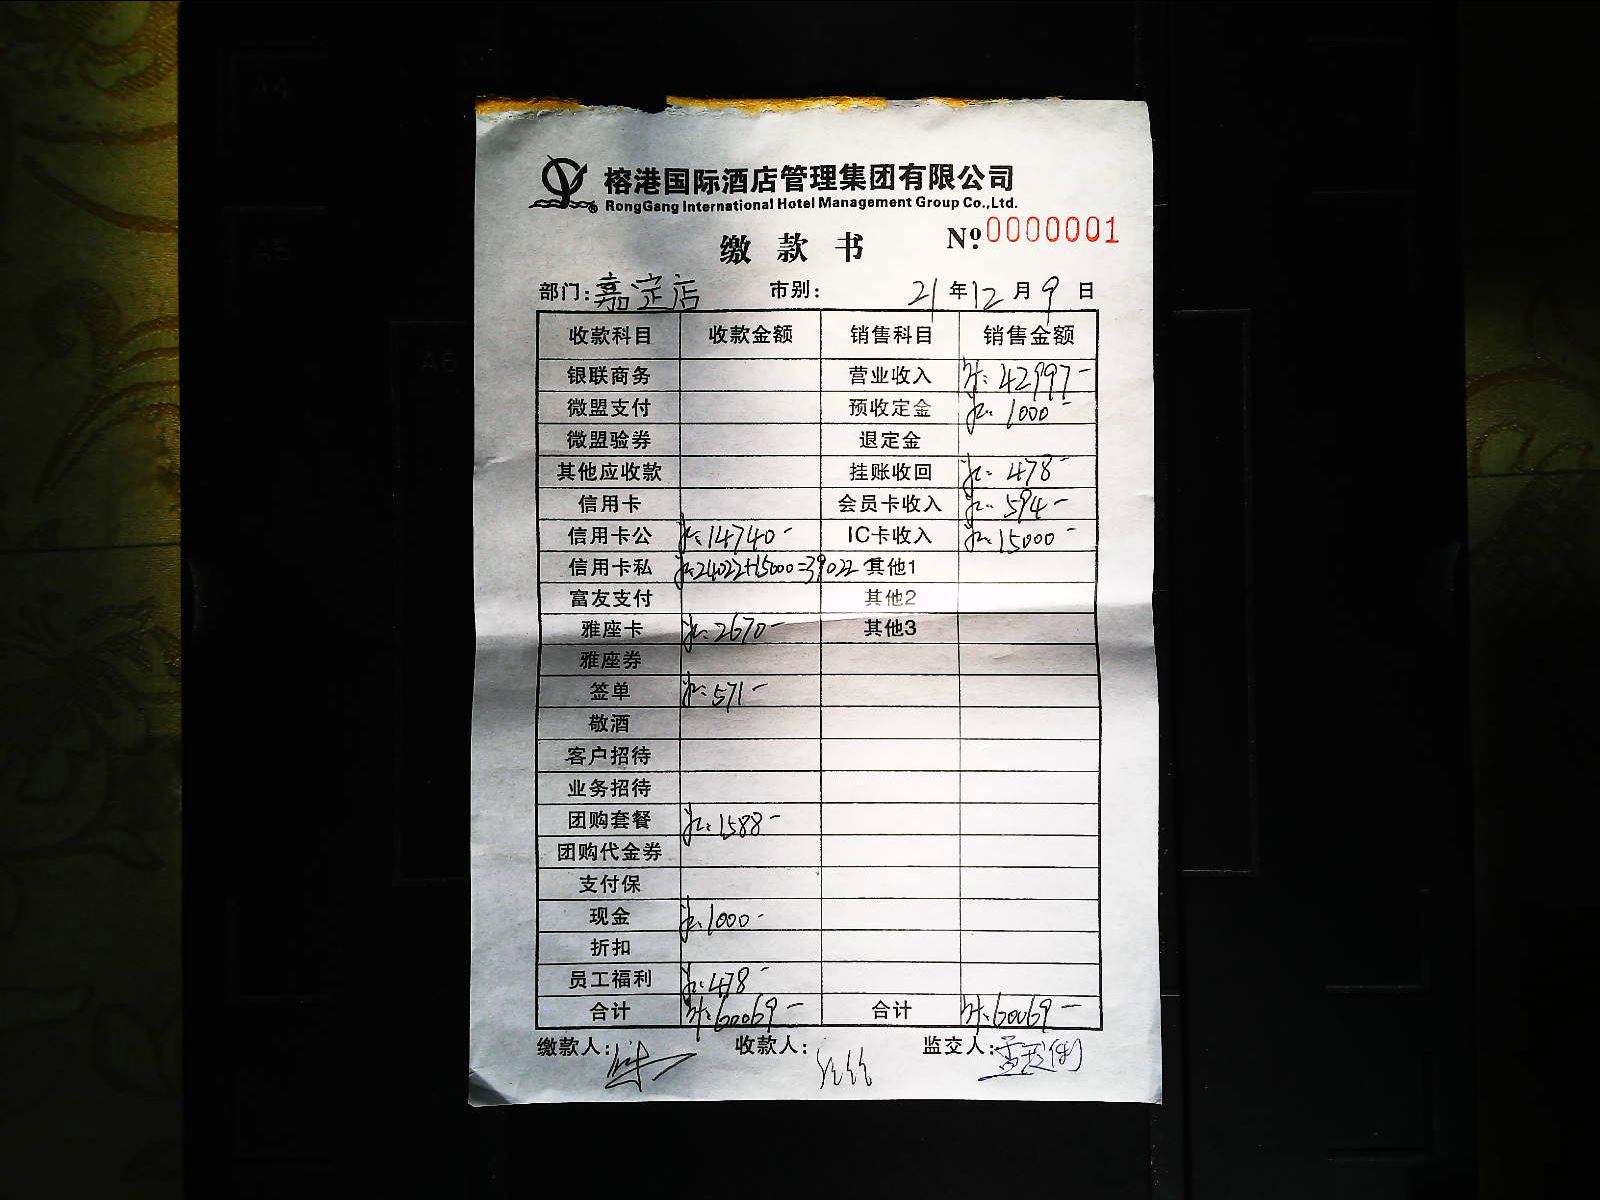 榕港国际酒店管理集团有限公司
RongGang International Hotel Management Group Co.,Ltd.
缴款书 Nº.0000001
部门:嘉定店 市别: 21年12月9日
收款科目 收款金额 销售科目 销售金额
银联商务 营业收入 42997-
微盟支付 预收定金 1000-
微盟验券 退定金
其他应收款 挂账收回 478-
信用卡 会员卡收入 594-
信用卡公 14740- IC卡收入 15000-
信用卡私 24022+15000=39022 其他1
富友支付 其他2
雅座卡 2670- 其他3
雅座券
签单 571-
敬酒
客户招待
业务招待
团购套餐 1588-
团购代金券
支付保
现金 1000-
折扣
员工福利 478-
合计 60069- 合计 60069-
缴款人: 收款人: 监交人:
A4
A5
A6